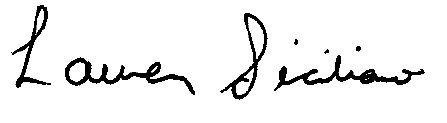 Lauren Siciliano